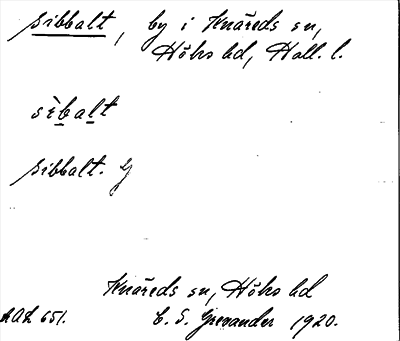 Sibbalt, by i Knäreds sn,
Höks hd, Hall. l.
sìbalt
Sibbalt. G
Knäreds sn, Höks hd
AOK 651. C. S. Grevander 1920.